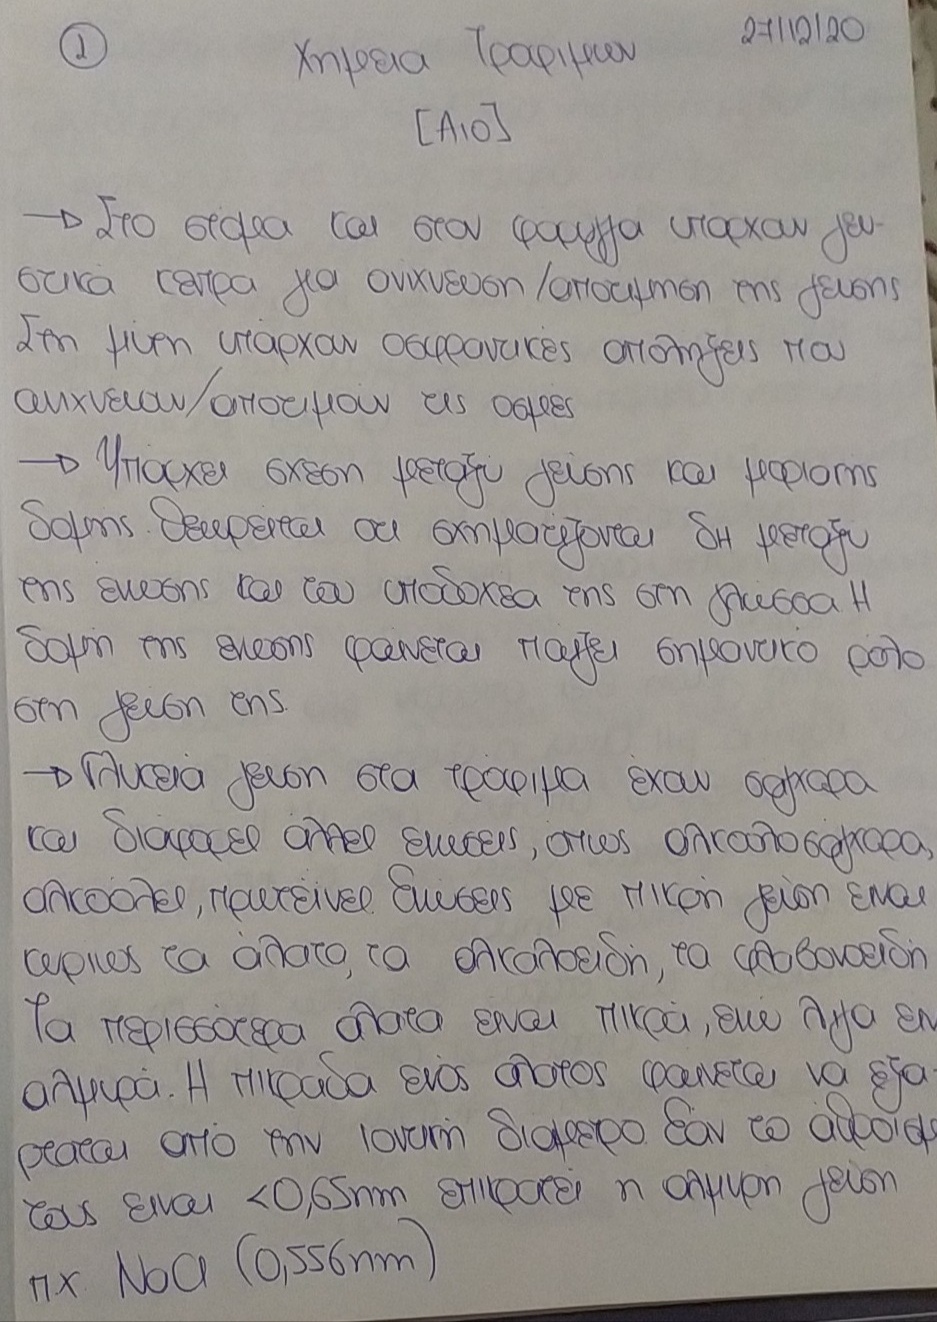 ① Χημεια Τροφιμων 27/12/20
[Α10]
→ Στο στόμα και στον φαρυγγα υπαρχουν γευ-
στικά κεντρα για ανιχνευση/αποτιμηση της γευσης
Στη μύτη υπάρχουν οσφραντικές απολήξεις που
ανιχνευουν/αποτιμούν τις οσμές
→ Υπάρχει σχεση μεταξυ γεύσης και μοριακης
δομής. Θεωρείται οτι σχηματιζονται δΗ μεταξυ
της ενωσης και του υποδοχέα της στη γλωσσα Η
δομη της ενωσης φαίνεται παιζει σημαντικο ρόλο
στη γευση της.
→ Γλυκειά γευση στα τρόφιμα έχουν σακχαρα
και διάφορες άλλες ενωσεις, οπως αλκοολοσακχαρα,
αλκοόλες, πρωτεϊνες. Ενώσεις με πικρη γεύση ειναι
κυριως τα άλατα, τα αλκαλοειδη, τα φλαβονοειδη
Τα περισσότερα αλατα ειναι πικρά, ενω λιγα ειν
αλμυρά. Η πικραδα ενός αλατος φαινεται να εξα-
ρταται απο την ιοντικη διαμετρο. Εάν το άθροισμ
τους ειναι <0,65nm επικρατεί η αλμυρη γεύση
πχ NaCl (0,556nm)